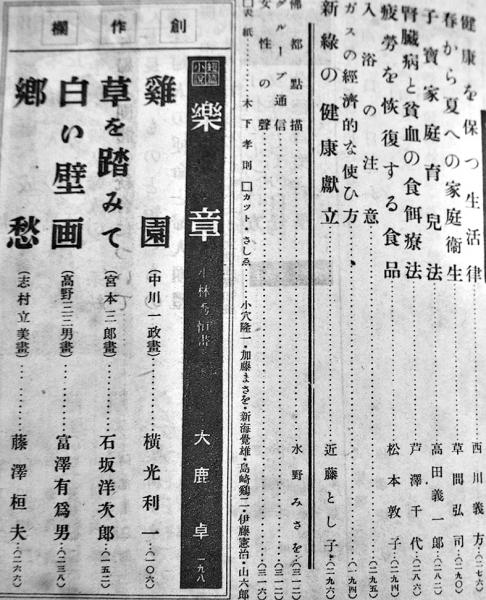 健康を保つ生活律……西川義方…(二七六)
春から夏への家庭衞生……草間弘司…(二九〇)
子寶家庭育兒法……高田義一郎…(二八二)
腎臟病と貧血の食餌療法……芦澤千代…(二八六)
疲勞を恢復する食品……松本敦子…(二九四)
入浴の注意……(二九五)
ガスの經濟的な使ひ方……(二九四)
新緑の健康獻立……近藤とし子…(二九六)
佛都點描……水野みさを…(三一二)
グループ通信……(三一二)
女性の聲……(三一六)
□表紙……木下孝則 □カット・さしゑ……小穴隆一・加藤まさを・新海覺雄・島崎鷄二・伊藤憲治・山六郎
創作欄
短篇小説
樂章 小林秀恒畫 大鹿卓 一九八
雞園(中川一政畫)……橫光利一…(一〇六)
草を踏みて(宮本三郎畫)……石坂洋次郎…(一五二)
白い壁画(高野三三男畫)……富澤有爲男…(二三八)
鄕愁(志村立美畫)……藤澤桓夫…(二六六)